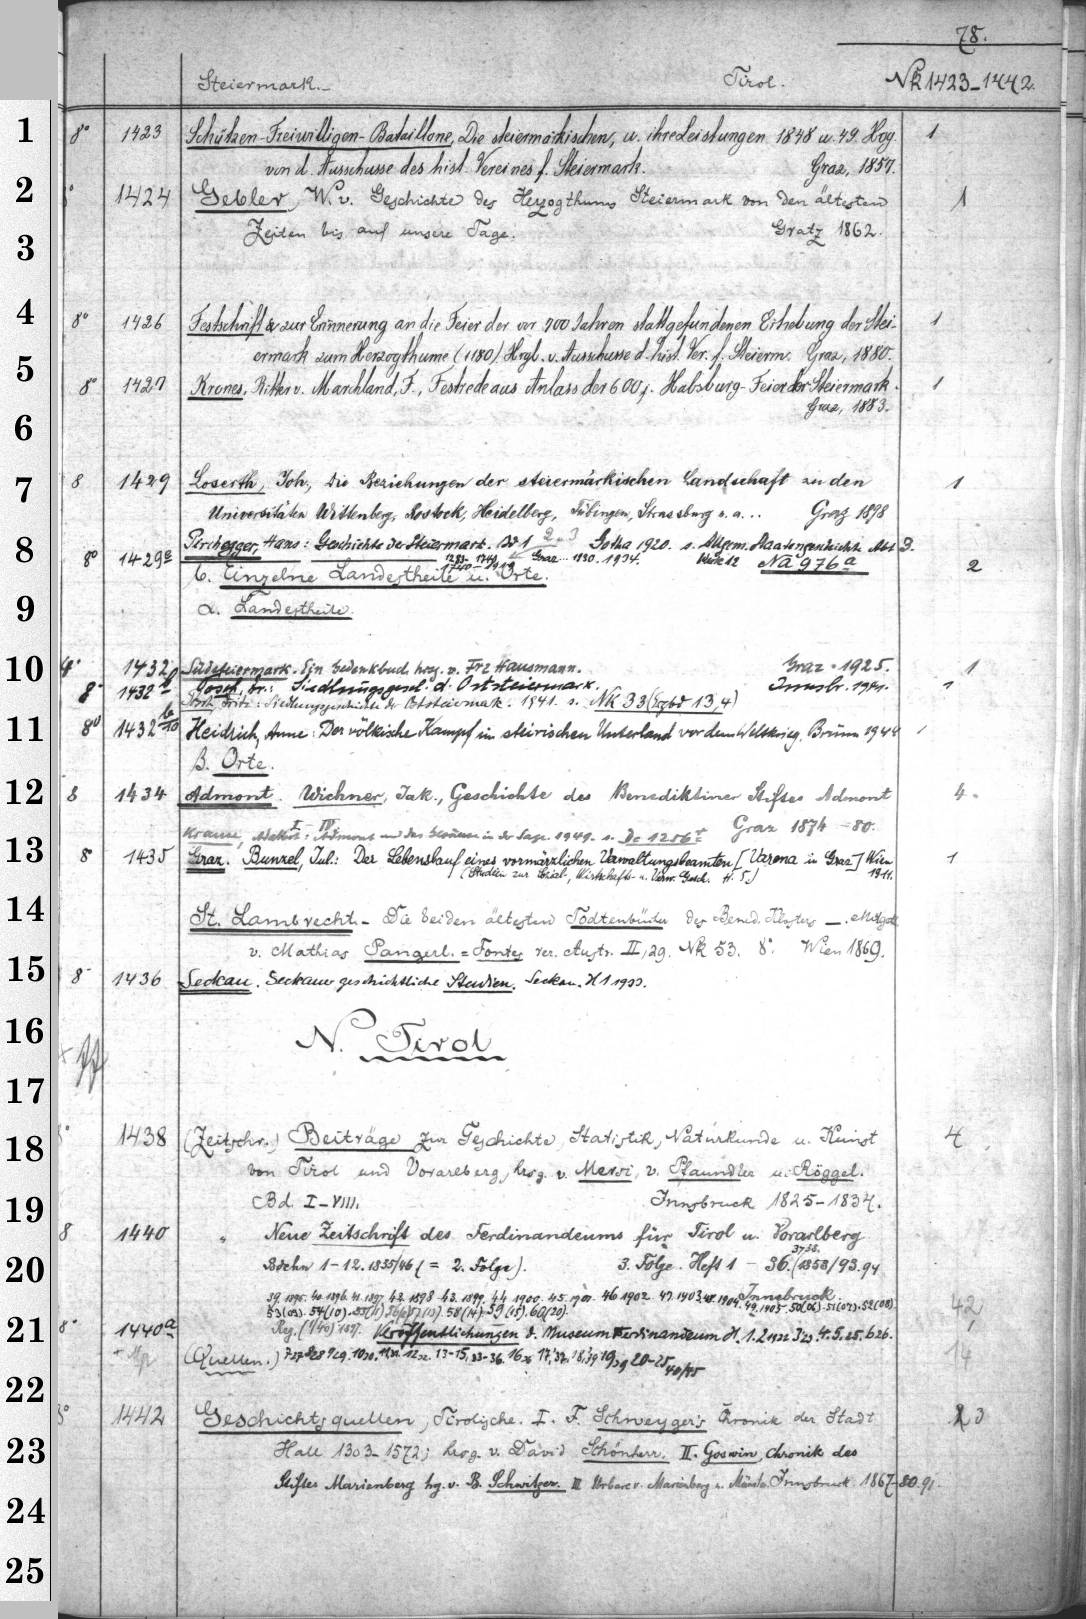 78.
Steiermark.- Tirol. Nk 1423-1442.
1 8° 1423 Schützen-Freiwilligen-Bataillone, Die steiermärkischen, u. ihre Leistungen 1848 u. 49. Hrg. 1
von d. Ausschusse des hist. Vereines f. Steiermark. Graz, 1857.
2 1424 Gebler, W. v. Geschichte des Herzogthums Steiermark von den ältesten 1
3 Zeiten bis auf unsere Tage. Gratz 1862.
4 8° 1426 Festschrift zur Erinnerung an die Feier der vor 700 Jahren stattgefundenen Erhebung der Stei- 1
5 ermark zum Herzogthume (1180). Hrgl. v. Ausschusse d. hist. Ver. f. Steierm. Graz, 1880.
8° 1427 Krones, Ritter v. Marchland, F., Festrede aus Anlass der 600 j. Habsburg-Feier der Steiermark. 1
6 Graz, 1883.
7 8 1429 Loserth, Joh., Die Beziehungen der steiermärkischen Landschaft zu den 1
Universitäten Wittenberg, Rostock, Heidelberg, Tübingen, Strassburg u. a... Graz 1898
8 8° 1429a Pirchegger, Hans: Geschichte der Steiermark. Bd 1 2 3 Gotha 1920. s. Allgem. Staatengeschichte Abt 3.
Graz 1930. 1934. Werk 12 Na 976a 2
b. Einzelne Landestheile u. Orte.
9 α. Landestheile.
10 4° 1432 Südsteiermark. Ein Gedenkbuch hrsg. v. Frz Hausmann. Graz 1925. 1
8° 1432 Posch, Fr.: Siedlungsgesch. d. Oststeiermark. Innsbr. 1941. 1
Posch, Fritz: Siedlungsgeschichte der Oststeiermark. 1941. s. Nk 33 (Ergbd 13,4)
11 8° 1432 b/10 Heidrich, Anne: Der völkische Kampf im steirischen Unterland vor dem Weltkrieg. Brünn 1944 1
β. Orte.
12 8 1434 Admont. Wichner, Jak., Geschichte des Benediktiner Stiftes Admont 4.
I-IV Graz 1874-80.
Krause, Adalbert: Admont und das Gesäuse in der Sage. 1949. s.
13 8° 1435 Graz. Bunzel, Jul.: Der Lebenslauf eines vormärzlichen Verwaltungsbeamten [Varena in Graz] Wien 1911. 1
(Studien zur Sozial-, Wirtschafts- u. Verw. Gesch. H. 5.)
14 St. Lambrecht.- Die beiden ältesten Todtenbücher des Bened. Klosters —. Mitget.
v. Mathias Pangerl. = Fontes rer. Austr. II, 29. Nk 53. 8°. Wien 1869.
15 8° 1436 Seckau. Seckauer geschichtliche Studien. Seckau. H 1 1933.
16 N. Tirol
17
18 8° 1438 (Zeitschr.) Beiträge zur Geschichte, Statistik, Naturkunde u. Kunst 4
von Tirol und Vorarlberg, hrsg. v. Mersi, v. Pfaundler u. Röggel.
19 Bd. I-VIII. Innsbruck 1825-1834.
8 1440 " Neue Zeitschrift des Ferdinandeums für Tirol u. Vorarlberg
20 Bdchn 1-12. 1835/46 (= 2. Folge). 3. Folge. Heft 1 - 36. 37 38. (1853/93.94
39 1895. 40 1896. 41. 1897. 42. 1898. 43. 1899. 44 1900. 45. 1901. 46 1902. 47. 1903. 48. 1904. Innsbruck.
49. 1905. 50(06). 51(07). 52(08). 53(09). 54(10). 55(11) 56(12) 57(13). 58(14). 59(15). 60(20). 42
21 8° 1440a Reg. (1/40) 1897. Veröffentlichungen d. Museum Ferdinandeum H. 1. 2 1922 3 23 4. 5. 25. 6 26. 1
(Quellen.) 13-15, 33-36. 20-25 40/45 14
22 1442 Geschichtsquellen, Tirolische. I. F. Schweyger's Chronik der Stadt 3
23 Hall 1303-1572; hrsg. v. David Schönherr. II. Goswin, Chronik des
Stiftes Marienberg hg. v. B. Schwitzer. III Urbare v. Marienberg u. Münster. Innsbruck. 1867-80.91.
24
25